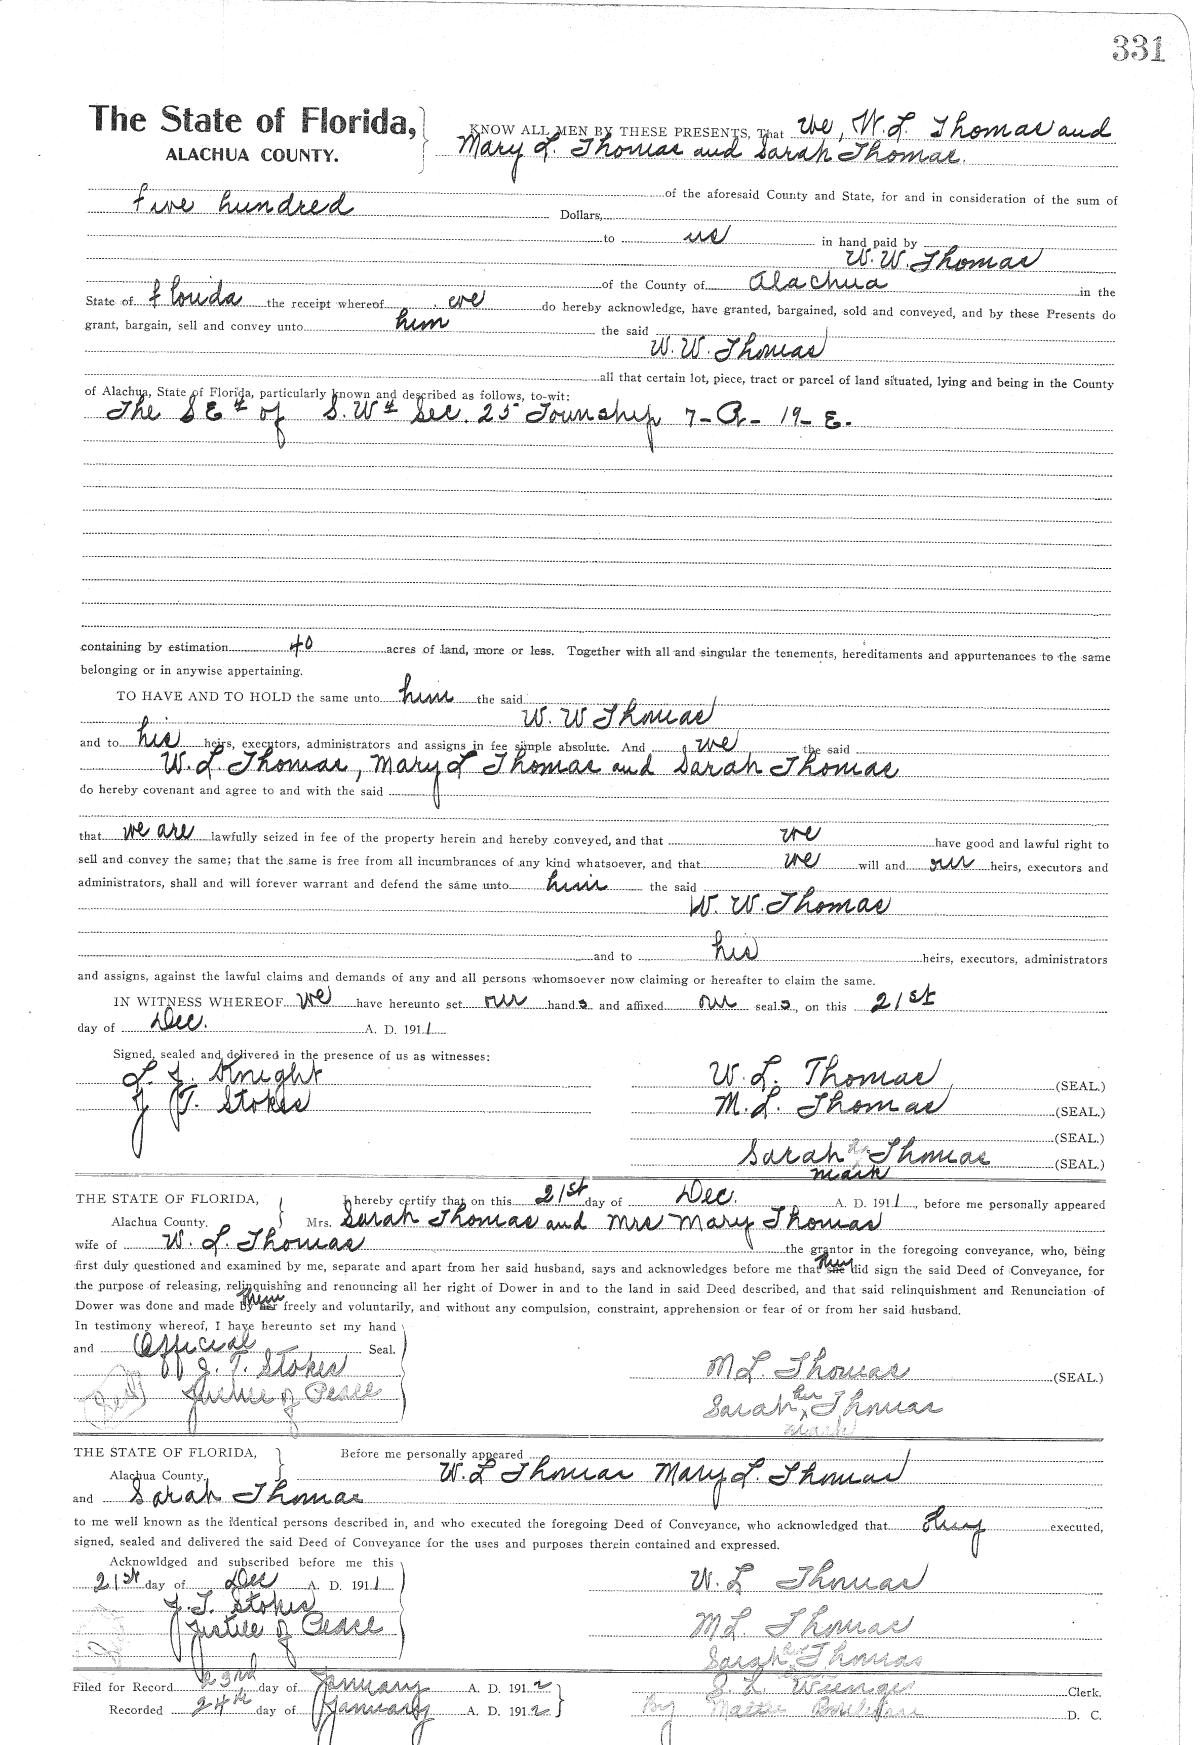 331
The State of Florida,
ALACHUA COUNTY.
KNOW ALL MEN BY THESE PRESENTS, That we, W. L. Thomas and
Mary L. Thomas and Sarah Thomas.
of the aforesaid County and State, for and in consideration of the sum of
five hundred Dollars,
to us in hand paid by
W. W. Thomas
of the County of Alachua in the
State of Florida the receipt whereof we do hereby acknowledge, have granted, bargained, sold and conveyed, and by these Presents do
grant, bargain, sell and convey unto him the said
W. W. Thomas
all that certain lot, piece, tract or parcel of land situated, lying and being in the County
of Alachua, State of Florida, particularly known and described as follows, to-wit:
The S E 4 of S. W 4 Sec. 25 Township 7- R- 19- E.
containing by estimation 40 acres of land, more or less. Together with all and singular the tenements, hereditaments and appurtenances to the same
belonging or in anywise appertaining.
TO HAVE AND TO HOLD the same unto him the said
W. W Thomas
and to his heirs, executors, administrators and assigns in fee simple absolute. And we the said
W. L. Thomas, Mary L Thomas and Sarah Thomas
do hereby covenant and agree to and with the said
that we are lawfully seized in fee of the property herein and hereby conveyed, and that we have good and lawful right to
sell and convey the same; that the same is free from all incumbrances of any kind whatsoever, and that we will and our heirs, executors and
administrators, shall and will forever warrant and defend the same unto him the said
W. W. Thomas
and to his heirs, executors, administrators
and assigns, against the lawful claims and demands of any and all persons whomsoever now claiming or hereafter to claim the same.
IN WITNESS WHEREOF we have hereunto set our hands and affixed our seals, on this 21st
day of Dec. A. D. 1911
Signed, sealed and delivered in the presence of us as witnesses:
L. J. Knight W. L. Thomas (SEAL.)
J. T. Stokes M. L. Thomas (SEAL.)
(SEAL.)
Sarah her Thomas (SEAL.)
mark
THE STATE OF FLORIDA, I hereby certify that on this 21st day of Dec. A. D. 1911, before me personally appeared
Alachua County. Mrs. Sarah Thomas and Mrs Mary Thomas
wife of W. L. Thomas the grantor in the foregoing conveyance, who, being
first duly questioned and examined by me, separate and apart from her said husband, says and acknowledges before me that she they did sign the said Deed of Conveyance, for
the purpose of releasing, relinquishing and renouncing all her right of Dower in and to the land in said Deed described, and that said relinquishment and Renunciation of
Dower was done and made by her them freely and voluntarily, and without any compulsion, constraint, apprehension or fear of or from her said husband.
In testimony whereof, I have hereunto set my hand
and Official Seal.
J. T. Stokes M L. Thomas (SEAL.)
Seal Justice of Peace Sarah her x Thomas
mark
THE STATE OF FLORIDA, Before me personally appeared
Alachua County, W. L Thomas Mary L. Thomas
and Sarah Thomas
to me well known as the identical persons described in, and who executed the foregoing Deed of Conveyance, who acknowledged that they executed,
signed, sealed and delivered the said Deed of Conveyance for the uses and purposes therein contained and expressed.
Acknowldged and subscribed before me this
21st day of Dec A. D. 1911 W. L Thomas
J. T. Stokes
Justice of Peace M L. Thomas
Sarah Thomas
Filed for Record 23rd day of January A. D. 1912 Clerk.
Recorded 24th day of January A. D. 1912 By D. C.